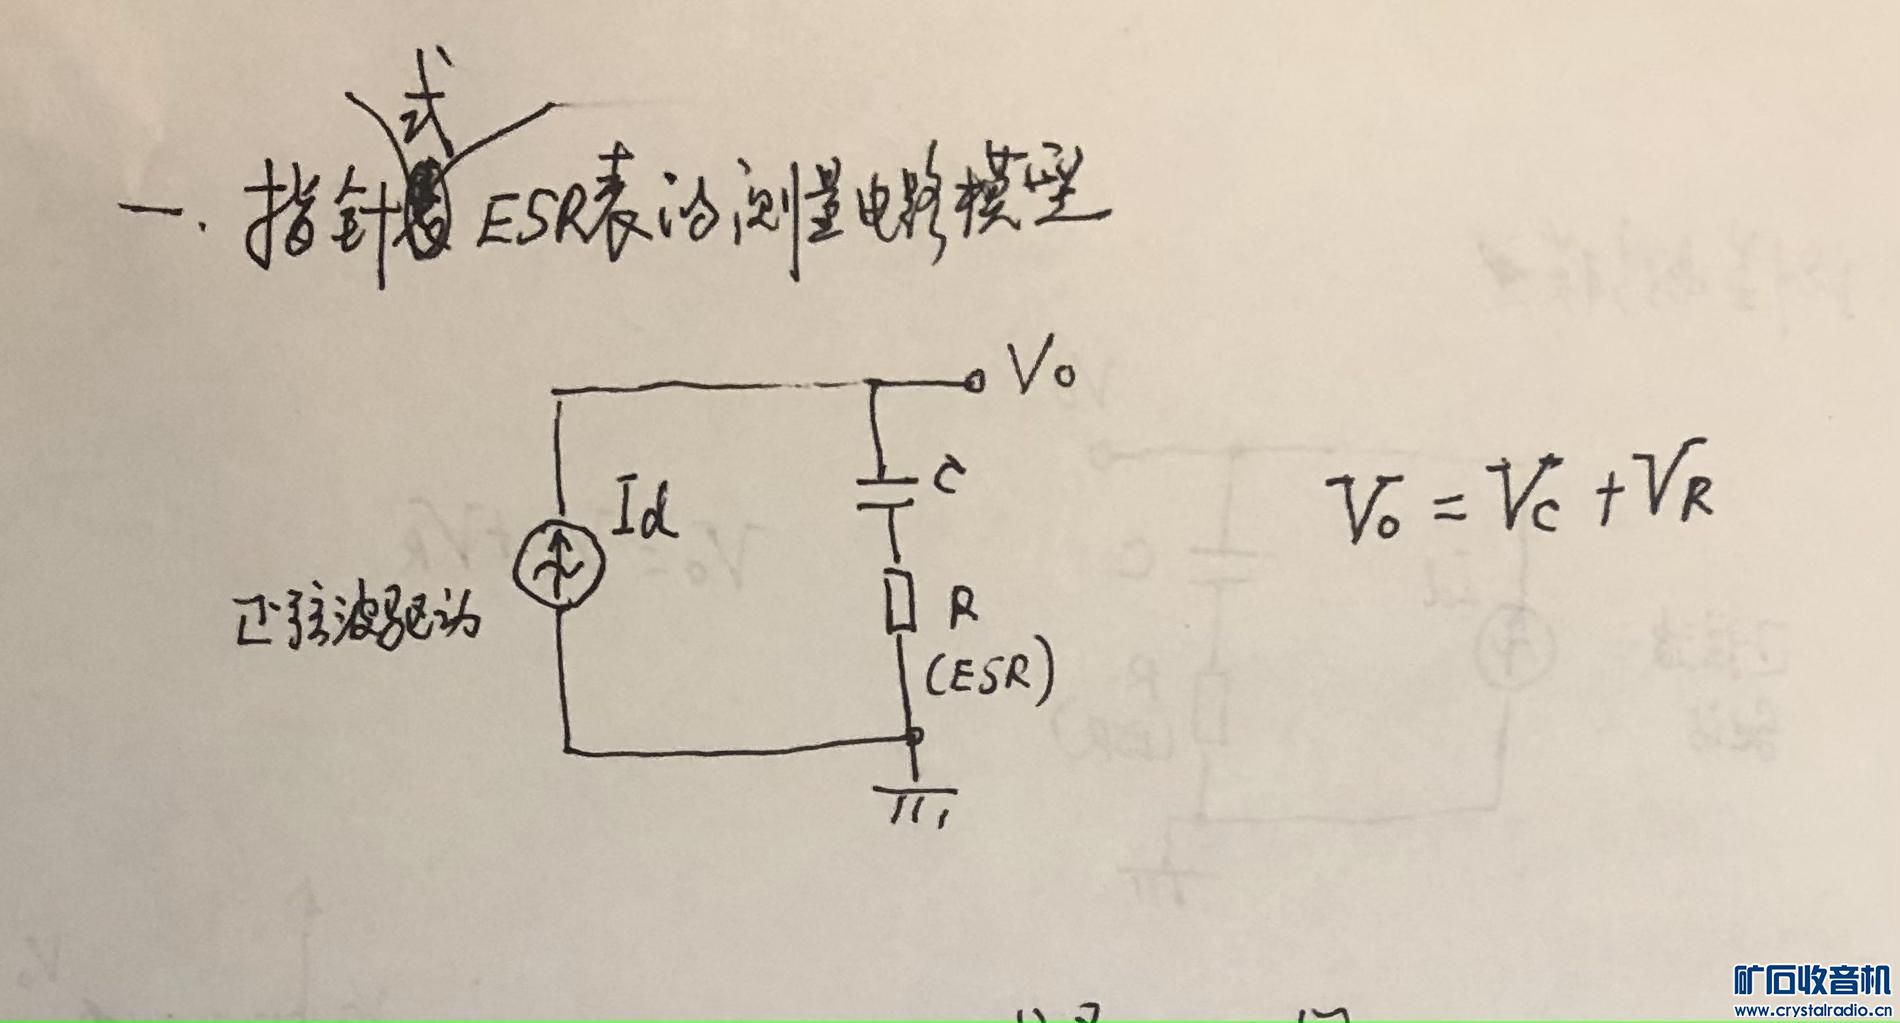 式
一.指针 ESR表的测量电路模型
Vo
C
Id
Vo = Vc + VR
正弦波驱动
R
(ESR)
矿石收音机
www.crystalradio.cn